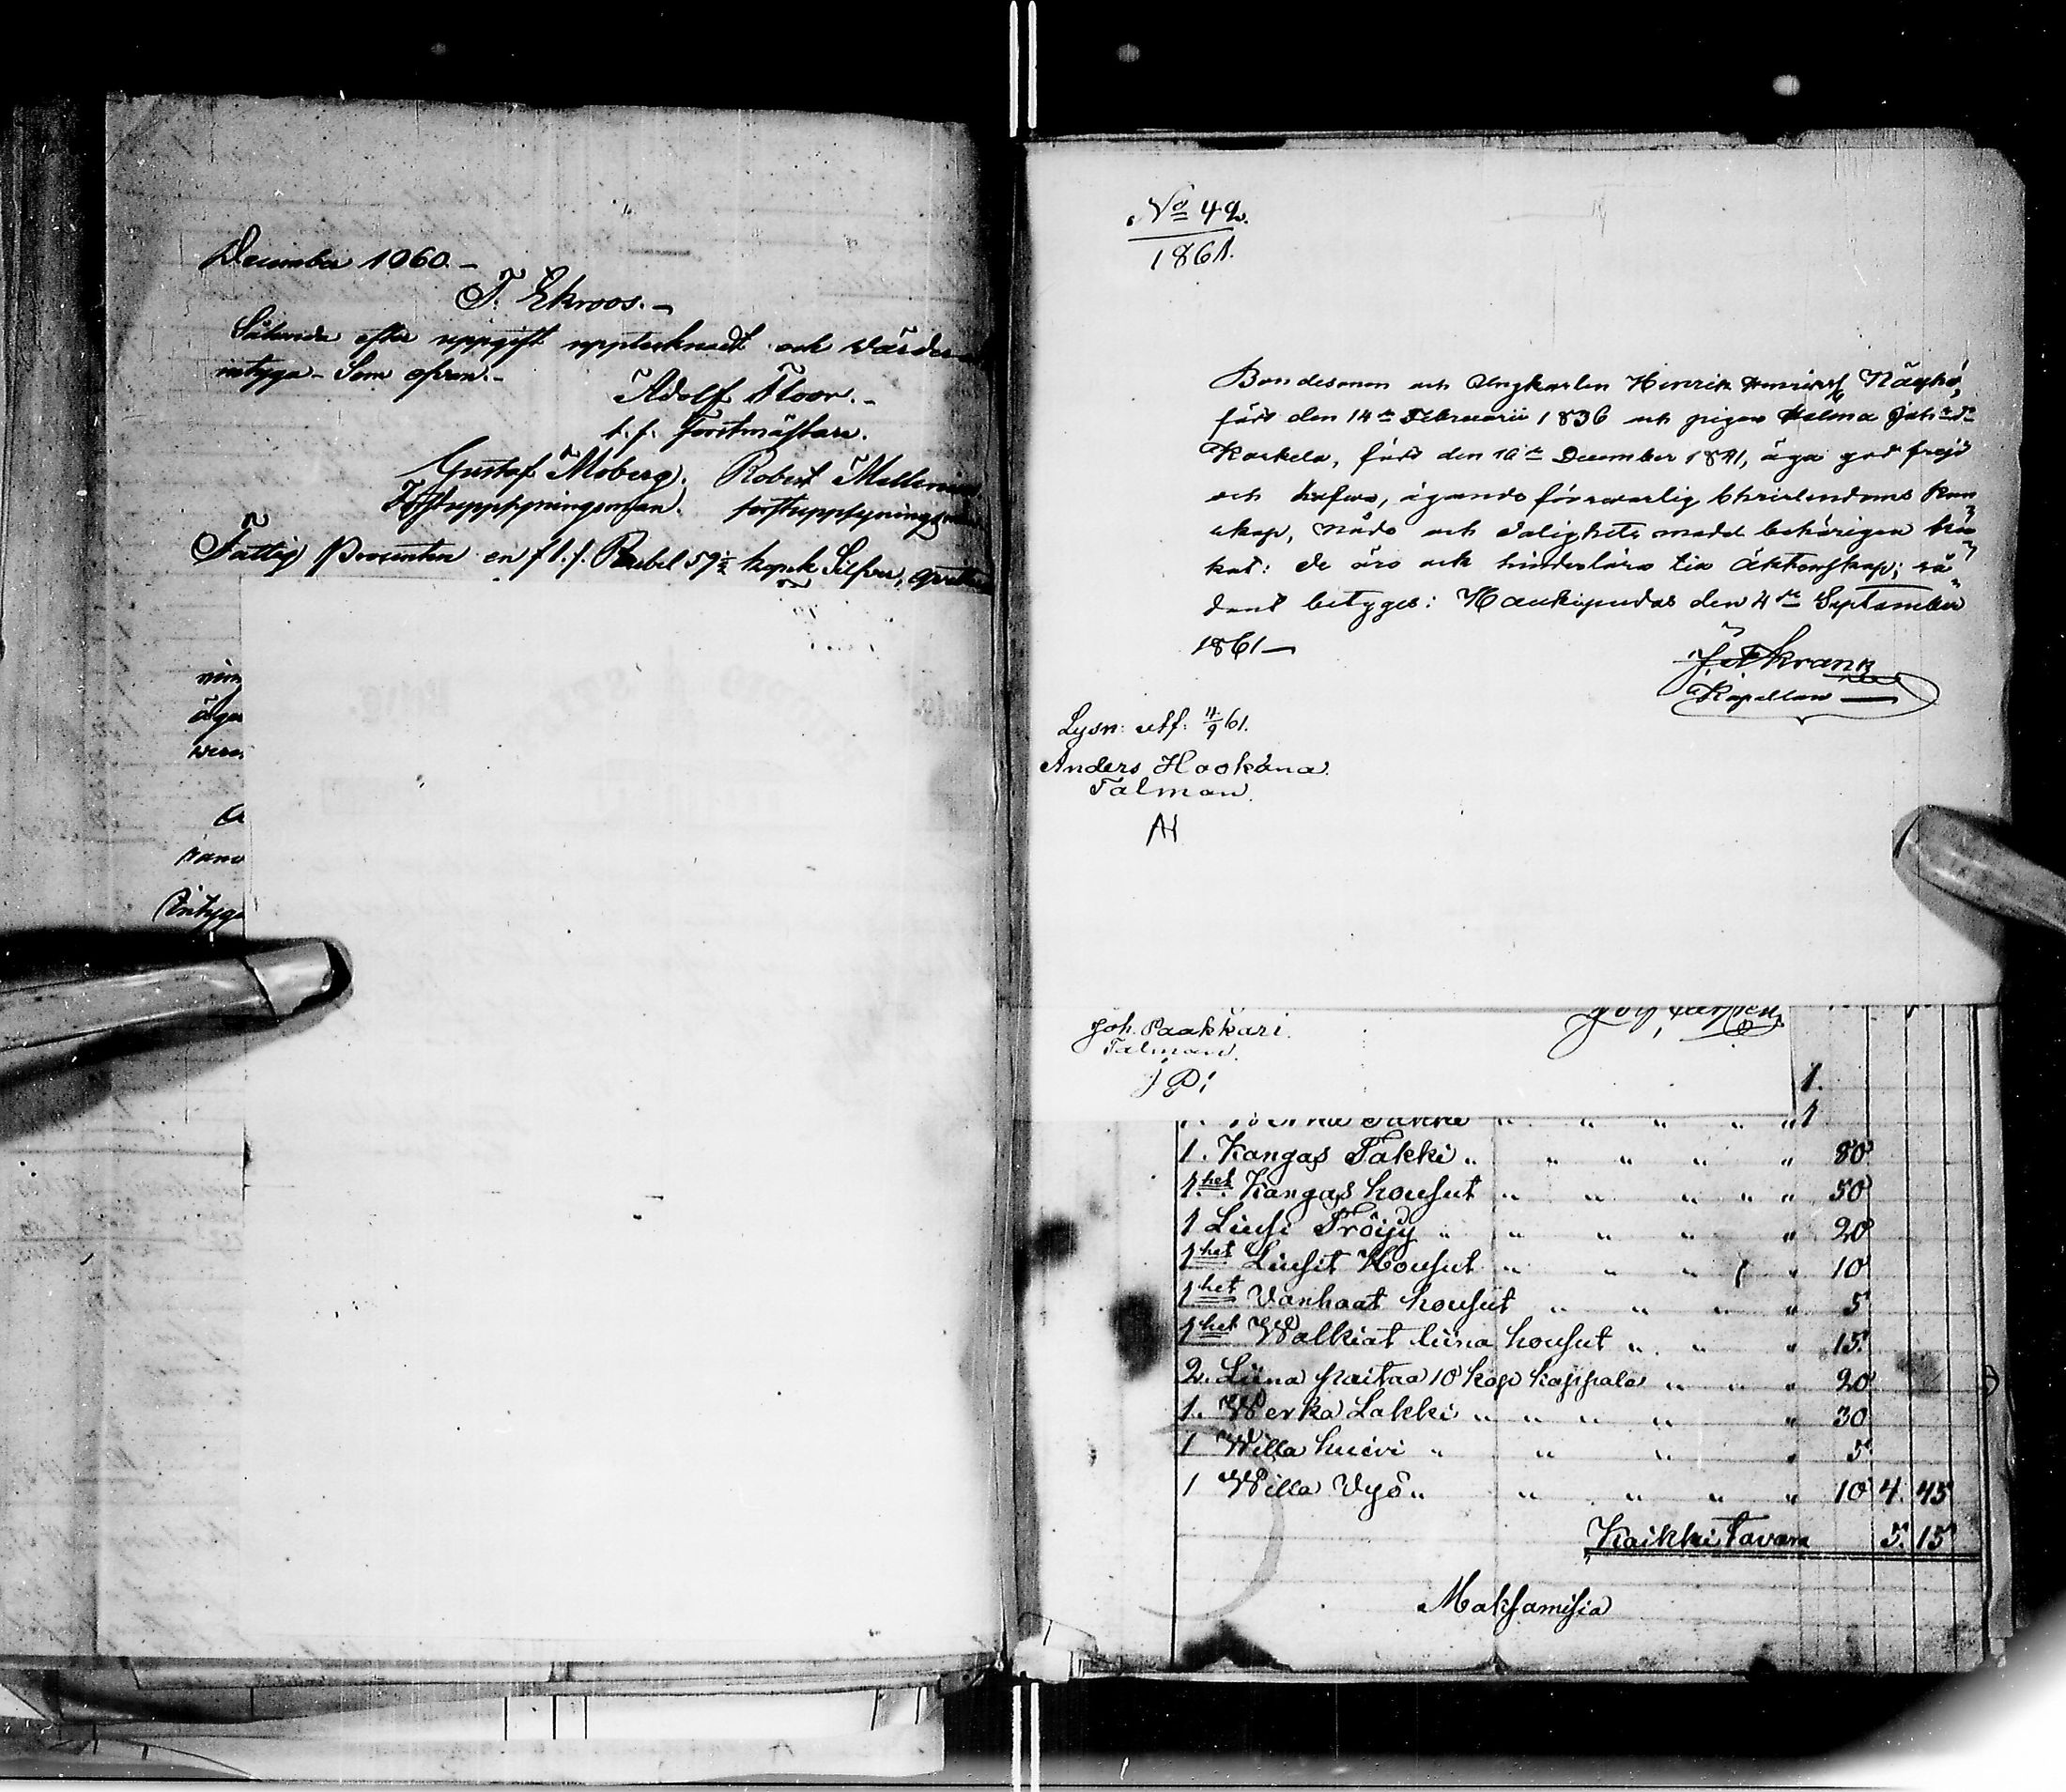 December 1860.-
T. Ekroos.-
Sålunda efter uppgift upptecknadt och värder
intyga - Som ofvan.-
Adolf Floor.-
t. f. Forstmästare.
Gustaf Moberg. Robert Mellenius
Forstuppsyningsman. forstuppsynings
Fattig Procenten en / 1. / Rubel 57½ kopek Silfver,
wid
äger
Intyga
No 42.
1861.
Bondesonen och Ungkarlen Henrik Henriks Näykö,
född den 14de Februarii 1836 och pigan Halma Joh:sdr
Karkela, född den 16de December 1841, äga god frejd
och hafwa, ägande förswarlig Christendoms kun
skap, Nådo och Salighets medel behörigen bru
kat: de äro ock hinderslösa till Äktenskap; så
dant betyges: Haukipudas den 4de September
1861 —
J. F. Krank
Kapellan
Lysn: utf: 4/9 61.
Anders Hookana
Talman
AH
Joh. Paakkari.
Talman.
J P
1.
1. Takki " " " " 1
1. Kangas Takki " " " " " 80
1het Kangas housut " " " " " 50
1 Liusi Tröijy " " " " " 20
1het Liusit Housut " " " " 10
1het Vanhaat housut " " " " 5
1het Walkiat liina housut " " " 15
2. Liina paitaa 10 kop kappale " " " 20
1. Werka Lakki " " " " " 30
1 Willa huivi " " " " 5
1 Willa Vyö " " " " " 10 4. 45
Kaikki Tavara 5. 15
Maksamisia